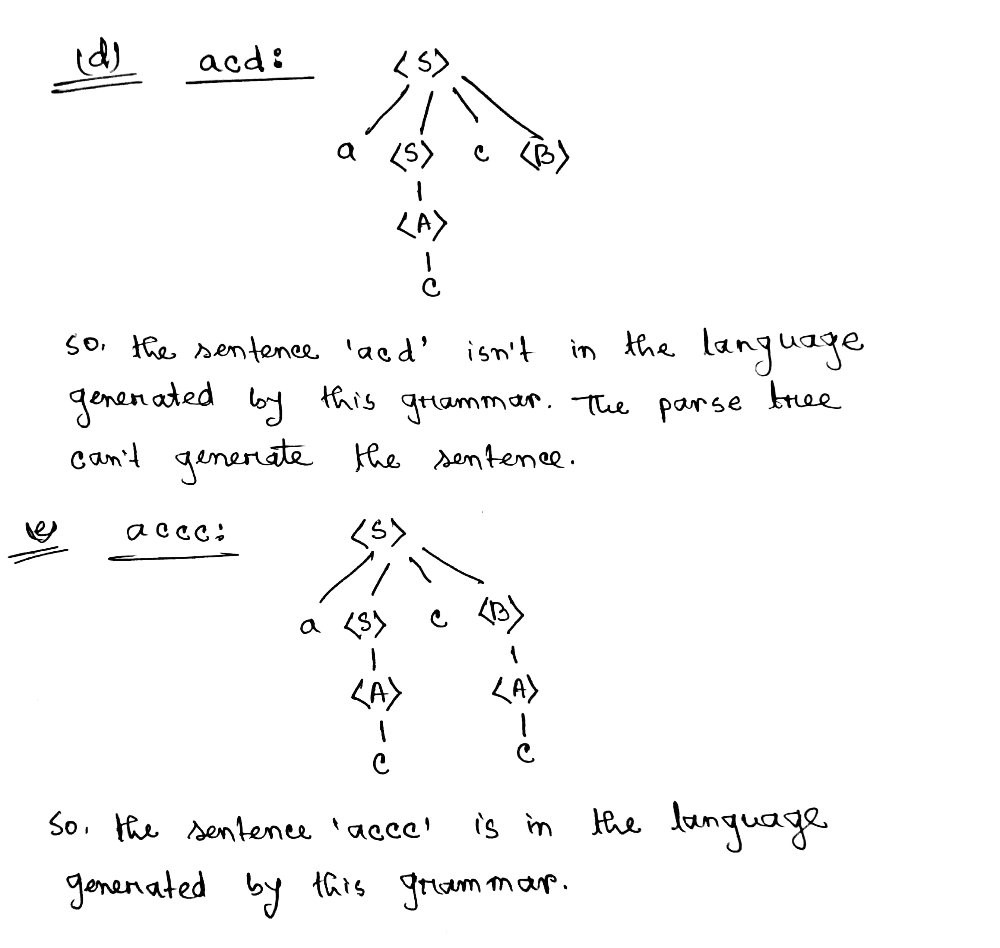 (d) acd: <S>
a <S> c <B>
<A>
c
So, the sentence 'acd' isn't in the language
generated by this grammar. The parse tree
can't generate the sentence.
(e) accc: <S>
a <S> c <B>
<A> <A>
c c
So, the sentence 'accc' is in the language
generated by this grammar.